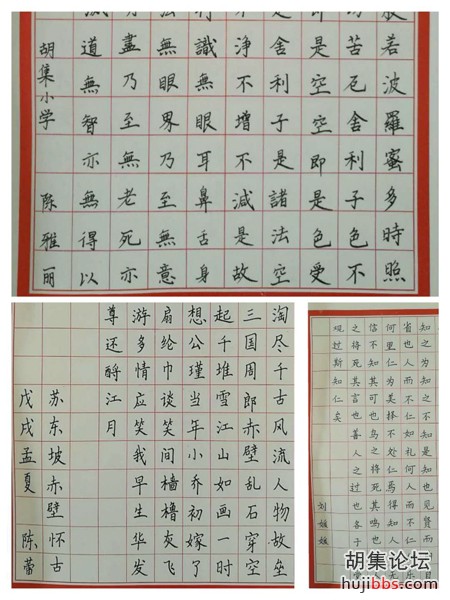 若波羅蜜多時照
苦厄舍利子色不
是空空即是色受
舍利子是諸法空
淨不增不減是故
識無眼耳鼻舌身
無眼界乃至無意
盡乃至無老死亦
道無智亦無得以
胡集小学 陈雅丽
淘尽千古风流人物故垒
三国周郎赤壁乱石穿空
起千堆雪江山如画一时
想公瑾当年小乔初嫁了
扇纶巾谈笑间樯橹灰飞
游多情应笑我早生华发
尊还酹江月
苏东坡赤壁怀古
戊戌孟夏 陈蕾
知之为知之不知是知也见贤而
省也人而不仁如礼何人而不仁
何里仁为美择不处仁焉得
信不知其可也鸟之将死其鸣
之将死其言也善人之过也各
观过斯知仁矣
刘媛媛
胡集论坛
hujibbs.com